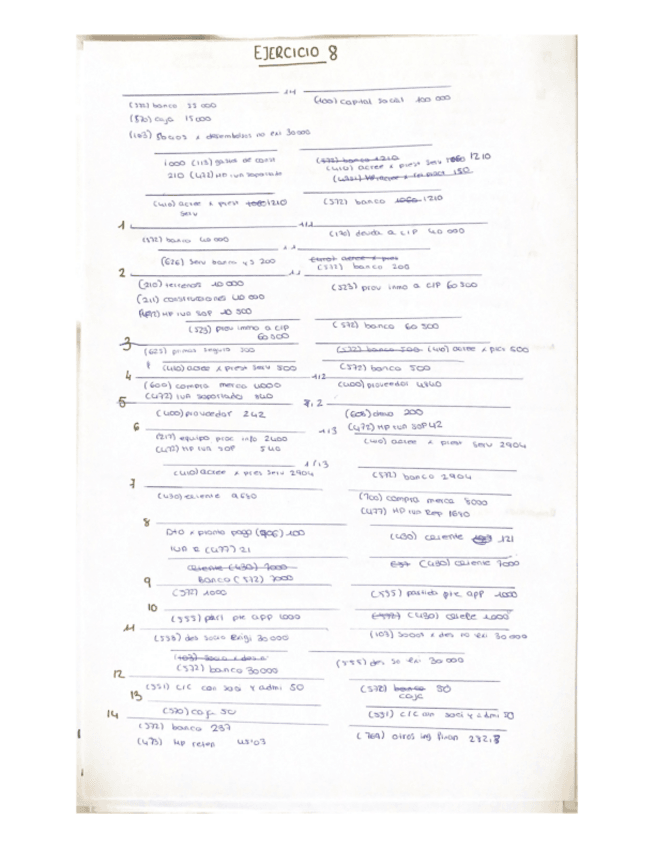 EJERCICIO 8
1/1
(572) banco 55 000 (100) capital social 100 000
(570) caja 15 000
(103) Socios x desembolsos no exi 30 000
1000 (113) gastos de const
210 (472) HP IVA soportado (410) acree x prest serv 1210
(410) acree x prest 1210 (572) banco 1210
serv
1
(572) banco 40 000 (170) deuda a C/P 40 000
(626) serv banc y S 200 (572) banco 200
2
(210) terrenos 10 000 (523) prov inmo a C/P 60 500
(211) construcciones 40 000
(472) HP IVA SOP 10 500
(523) prov inmo a C/P (572) banco 60 500
60 500
3
(625) primas seguro 500 (410) acree x pres 500
(410) acree x prest serv 500 (572) banco 500
4
(600) compra merca 4000 (400) proveedor 4840
(472) IVA soportado 840
5
(400) proveedor 242 (608) devo 200
(472) HP IVA SOP 42
6
(217) equipo proc info 2400 (410) acree x prest serv 2904
(472) HP IVA SOP 540
1/3
(410) acree x pres serv 2904 (572) banco 2904
7
(430) cliente 9680 (700) compra merca 8000
(477) HP IVA Rep 1680
8
Dto x pronto pago (706) 100 (430) cliente 121
IVA R (477) 21
Banco (572) 7000 (430) cliente 7000
9
(572) 1000 (555) partida pte app 1000
10
(555) part pte app 1000 (430) cliente 1000
11
(558) des socio exigi 30 000 (103) socios x des no exi 30 000
(572) banco 30000 (558) des so exi 30 000
12
(551) C/C con soci y admi 50 (570) 50
caja
13
(570) caja 50 (551) C/C con soci y admi 50
14
(572) banco 237 (769) otros ing finan 282,3
(473) HP reten 45'03